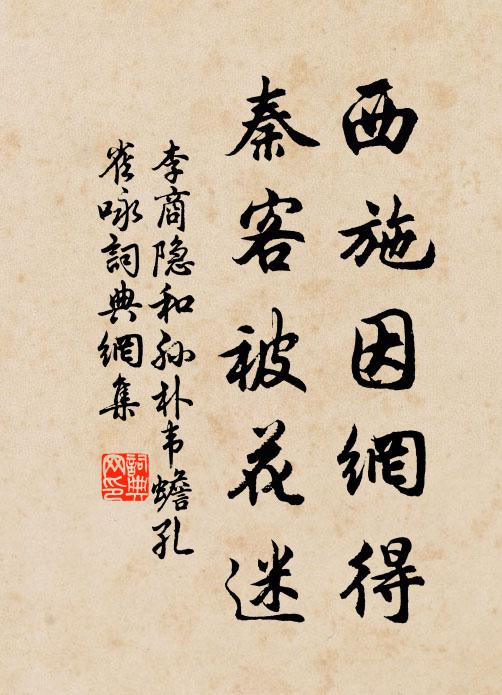 西施因網得
秦客被花迷
李商隐和孙朴韦蟾孔
雀咏詞典網集
詞典
网印